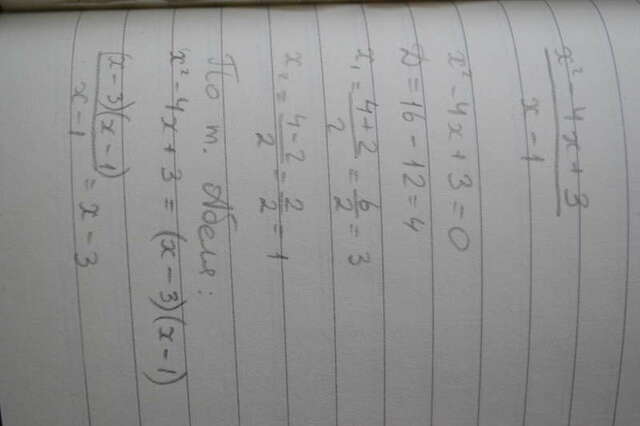 x² - 4x + 3
x - 1
x² - 4x + 3 = 0
D = 16 - 12 = 4
x₁ = 4+2/2 = 6/2 = 3
x₂ = 4-2/2 = 2/2 = 1
По т. Абеля:
x² - 4x + 3 = (x - 3)(x - 1)
(x - 3)(x - 1)/x - 1 = x - 3